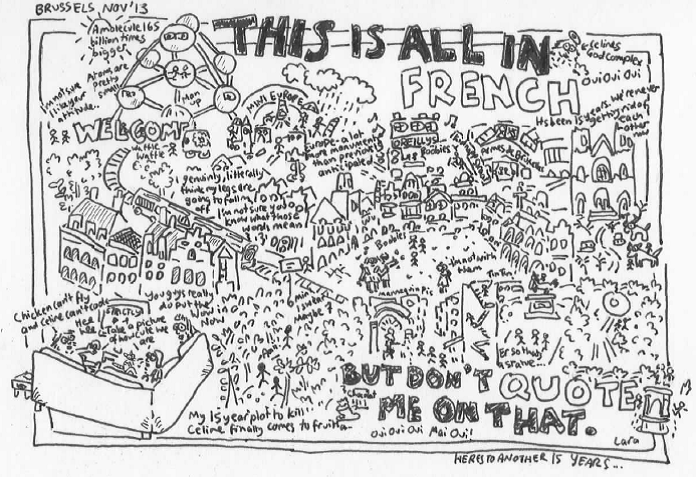 BRUSSELS, NOV'13
THIS IS ALL IN
FRENCH
A molecule 165
billion times
bigger
Atoms are
pretty
small
I'm not sure
I like your
attitude.
Man
up
MINI EUROPE
WELCOME
Celines
God complex
Oui Oui Oui
Its been 15 years. We're never
getting rid of
each
other
now
Europe - a lot
more monuments
than previously
anticipated
O'REILLYS
Boobies
Waffle
waffle
I genuinely, literally
think my legs are
going to fall
off
I'm not sure you
know what those
words mean
Boobies
I'm not with
them
TinTin
mannequin Pis
Chicken can't fly
and Celine can't
Hee
hee
STRICTLY
Take a picture
of how cute we
are
You guys really
blow the
Wow in
Now
6 min
Maybe?
Er so that's
a statue...
BUT DON'T QUOTE
ME ON THAT.
My 15 year plot to kill
Celine finally comes to
Oui Oui Oui Mai Oui!
Lara
HERES TO ANOTHER 15 YEARS...